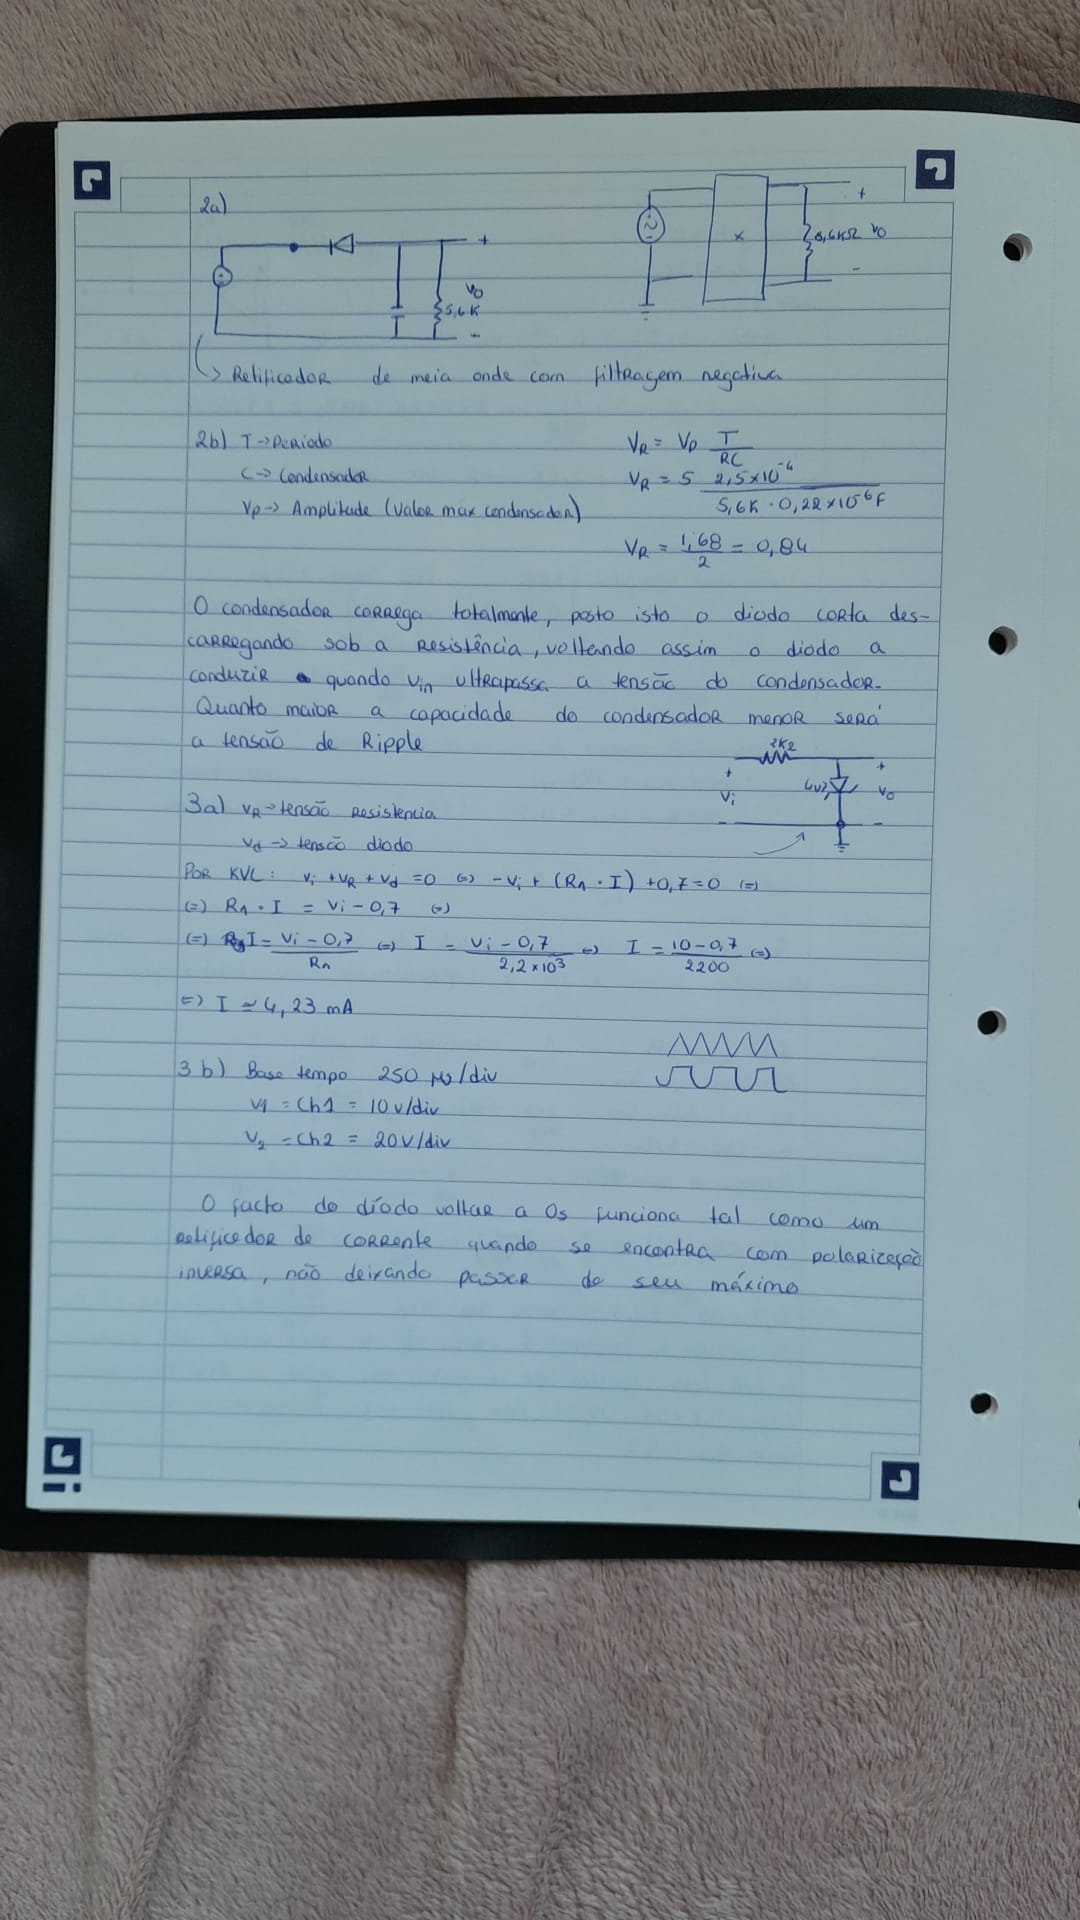 2a)
+
V0
5,6K
-
~
x
+
5,6KΩ V0
-
↳ Retificador de meia onde com filtragem negativa
2b) T → Periodo
C → Condensador
Vp → Amplitude (Valor max condensador)
VR = Vp T/RC
VR = 5 2,5x10^-4 / 5,6K · 0,22x10^-6 F
VR = 1,68/2 = 0,84
O condensador correga totalmente, posto isto o diodo corta des-
carregando sob a resistência, voltando assim o diodo a
conduzir quando Vin ultrapassa a tensão do condensador.
Quanto maior a capacidade do condensador menor será
a tensão de Ripple
+ Vi -
4V7
+ Vo -
3a) VR → tensão resistencia
Vd → tensão diodo
Por KVL: Vi + VR + Vd = 0 (=) -Vi + (R1 · I) + 0,7 = 0 (=)
(=) R1 · I = Vi - 0,7 (=)
(=) I = Vi - 0,7 / R1 (=) I = Vi - 0,7 / 2,2x10^3 (=) I = 10 - 0,7 / 2200 (=)
(=) I ≃ 4,23 mA
3b) Base tempo 250 µs/div
V1 = Ch1 = 10v/div
V2 = Ch2 = 20V/div
O facto do díodo voltar a 0s funciona tal como um
retificador de corrente quando se encontra com polarização
inversa, não deixando passar do seu máximo